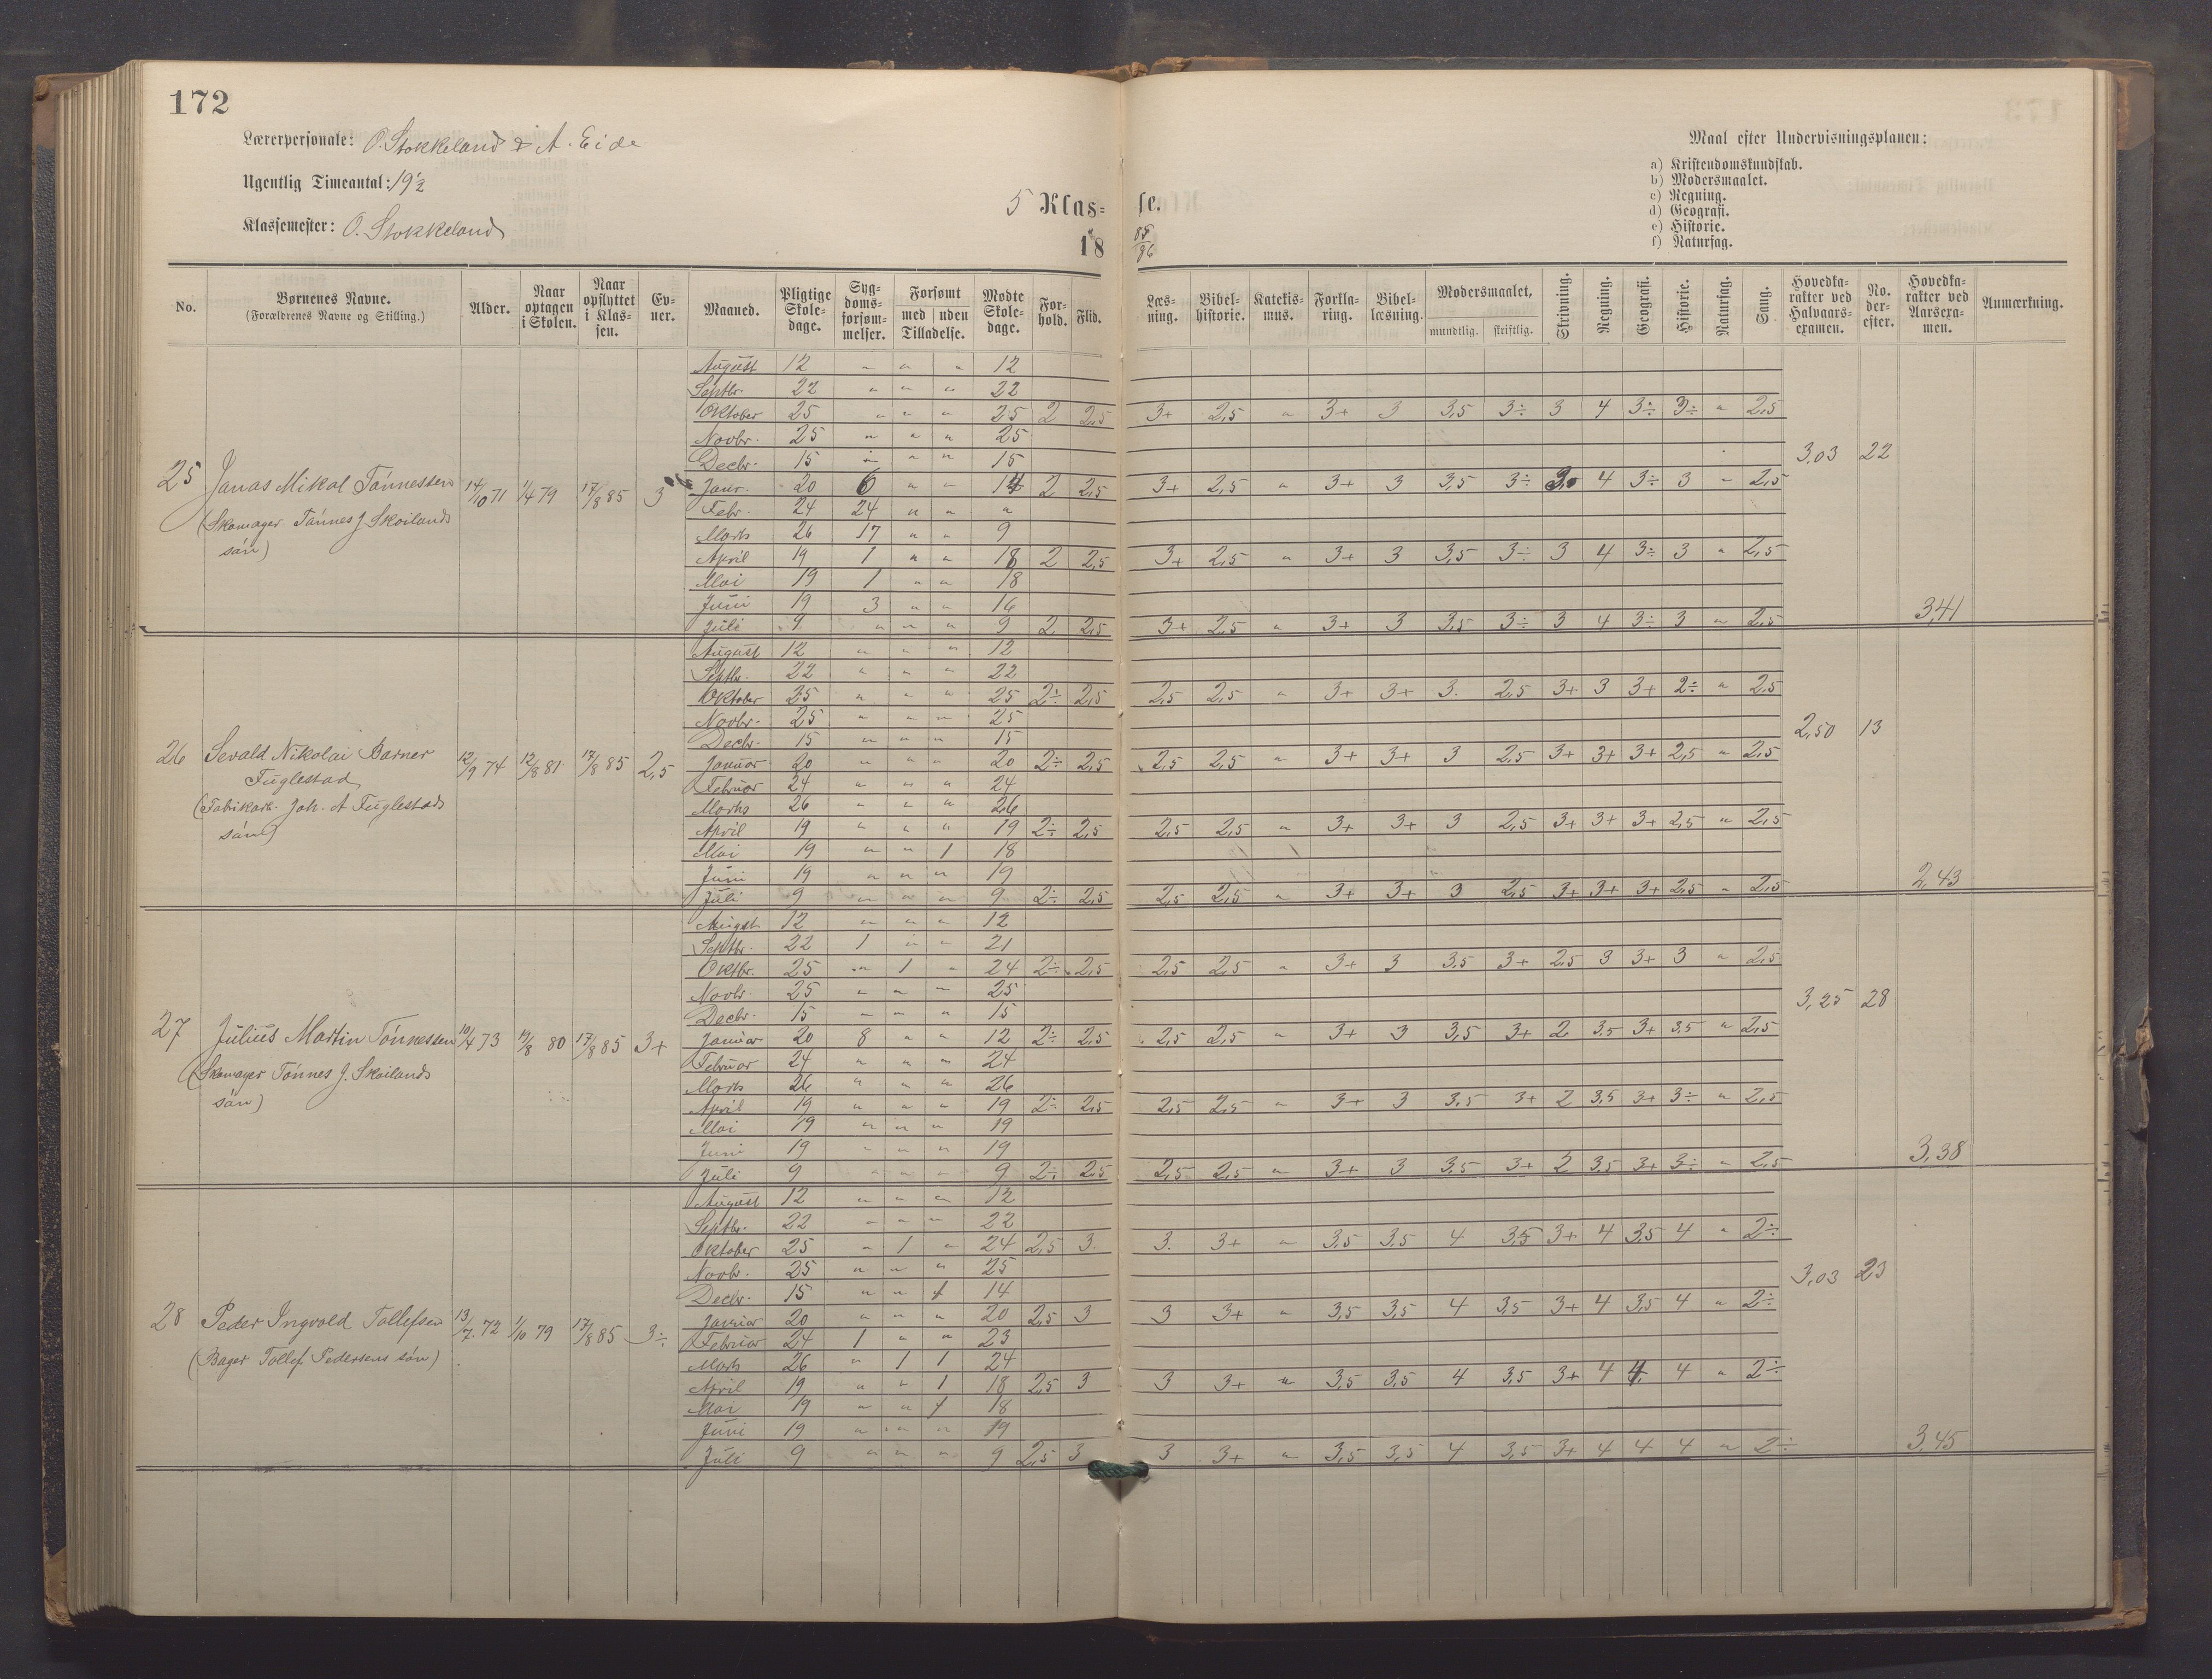 172
Lærerpersonale: O. Stokkeland & A. Eide
Ugentlig Timeantal: 19½
Klassemester: O. Stokkeland
5 Klas= se.
18 85/86
Maal efter Undervisningsplanen:
a) Kristendomskundskab.
b) Modersmaalet.
c) Regning.
d) Geografi.
e) Historie.
f) Naturfag.
No. | Børnenes Navne. (Forældrenes Navne og Stilling.) | Alder. | Naar optagen i Skolen. | Naar opflyttet i Klassen. | Evner. | Maaned. | Pligtige Skoledage. | Sygdomsforsømmelser. | Forsømt med uden Tilladelse. | Mødte Skoledage. | Forhold. | Flid. | Læsning. | Bibelhistorie. | Katekismus. | Forklaring. | Bibellæsning. | Modersmaalet, mundtlig. skriftlig. | Skrivning. | Regning. | Geografi. | Historie. | Naturfag. | Sang. | Hovedkarakter ved Halvaarsexamen. | No. derefter. | Hovedkarakter ved Aarsexamen. | Anmærkning.
25 Jonas Mikal Tönnessen 14/10 71 1/4 79 17/8 85 3
(Skomager Tönnes J. Skoilands
sön)
August 12 " " " 12
Septbr. 22 " " " 22
Oktober 25 " " " 25 2 2,5 3+ 2,5 " 3+ 3 3,5 3÷ 3 4 3÷ 3÷ " 2,5
Novbr. 25 " " " 25
Decbr. 15 " " " 15 3,03 22
Janr. 20 6 " " 14 2 2,5 3+ 2,5 " 3+ 3 3,5 3÷ 3 4 3÷ 3 " 2,5
Febr. 24 24 " " "
Marts 26 17 " " 9
April 19 1 " " 18 2 2,5 3+ 2,5 " 3+ 3 3,5 3÷ 3 4 3÷ 3 " 2,5
Mai 19 1 " " 18
Juni 19 3 " " 16 3,41
Juli 9 " " " 9 2 2,5 3+ 2,5 " 3+ 3 3,5 3÷ 3 4 3÷ 3 " 2,5
26 Sevald Nikolai Barner
Fuglestad 12/9 74 12/8 81 17/8 85 2,5
(Fabrikarb. Joh. A Fuglestads
sön)
August 12 " " " 12
Septbr. 22 " " " 22
Oktober 25 " " " 25 2÷ 2,5 2,5 2,5 " 3+ 3+ 3. 2,5 3+ 3 3+ 2÷ " 2,5
Novbr. 25 " " " 25
Decbr. 15 " " " 15 2,50 13
Januar 20 " " " 20 2÷ 2,5 2,5 2,5 " 3+ 3+ 3 2,5 3+ 3+ 3+ 2,5 " 2,5
Februar 24 " " " 24
Marts 26 " " " 26
April 19 " " " 19 2÷ 2,5 2,5 2,5 " 3+ 3+ 3 2,5 3+ 3+ 3+ 2,5 " 2,5
Mai 19 " " 1 18
Juni 19 " " " 19 2,43
Juli 9 " " " 9 2÷ 2,5 2,5 2,5 " 3+ 3+ 3 2,5 3+ 3+ 3+ 2,5 " 2,5
27 Julius Martin Tönnessen 10/4 73 19/8 80 17/8 85 3+
(Skomager Tönnes J. Skoilands
sön)
August 12 " " " 12
Septbr. 22 1 " " 21
Oktbr. 25 " 1 " 24 2÷ 2,5 2,5 2,5 " 3+ 3 3,5 3+ 2,5 3 3+ 3 " 2,5
Novbr. 25 " " " 25
Decbr. 15 " " " 15 3,25 28
Januar 20 8 " " 12 2÷ 2,5 2,5 2,5 " 3+ 3 3,5 3+ 2 3,5 3+ 3,5 " 2,5
Februar 24 " " " 24
Marts 26 " " " 26
April 19 " " " 19 2÷ 2,5 2,5 2,5 " 3+ 3 3,5 3+ 2 3,5 3+ 3÷ " 2,5
Mai 19 " " " 19
Juni 19 " " " 19 3,38
Juli 9 " " " 9 2÷ 2,5 2,5 2,5 " 3+ 3 3,5 3+ 2 3,5 3+ 3÷ " 2,5
28 Peder Ingvald Tollefsen 13/7 72 1/10 79 17/8 85 3÷
(Bager Tollef Pedersens sön)
August 12 " " " 12
Septbr. 22 " " " 22
Oktober 25 " 1 " 24 2,5 3. 3. 3+ " 3,5 3,5 4 3,5 3+ 4 3,5 4 " 2÷
Novbr. 25 " " " 25
Decbr. 15 " " 1 14 3,03 23
Januar 20 " " " 20 2,5 3 3 3+ " 3,5 3,5 4 3,5 3+ 4 3,5 4 " 2÷
Februar 24 1 " " 23
Marts 26 " 1 1 24
April 19 " " 1 18 2,5 3 3 3+ " 3,5 3,5 4 3,5 3+ 4 4 4 " 2÷
Mai 19 " " 1 18
Juni 19 " " " 19 3,45
Juli 9 " " " 9 2,5 3 3 3+ " 3,5 3,5 4 3,5 3+ 4 4 4 " 2÷